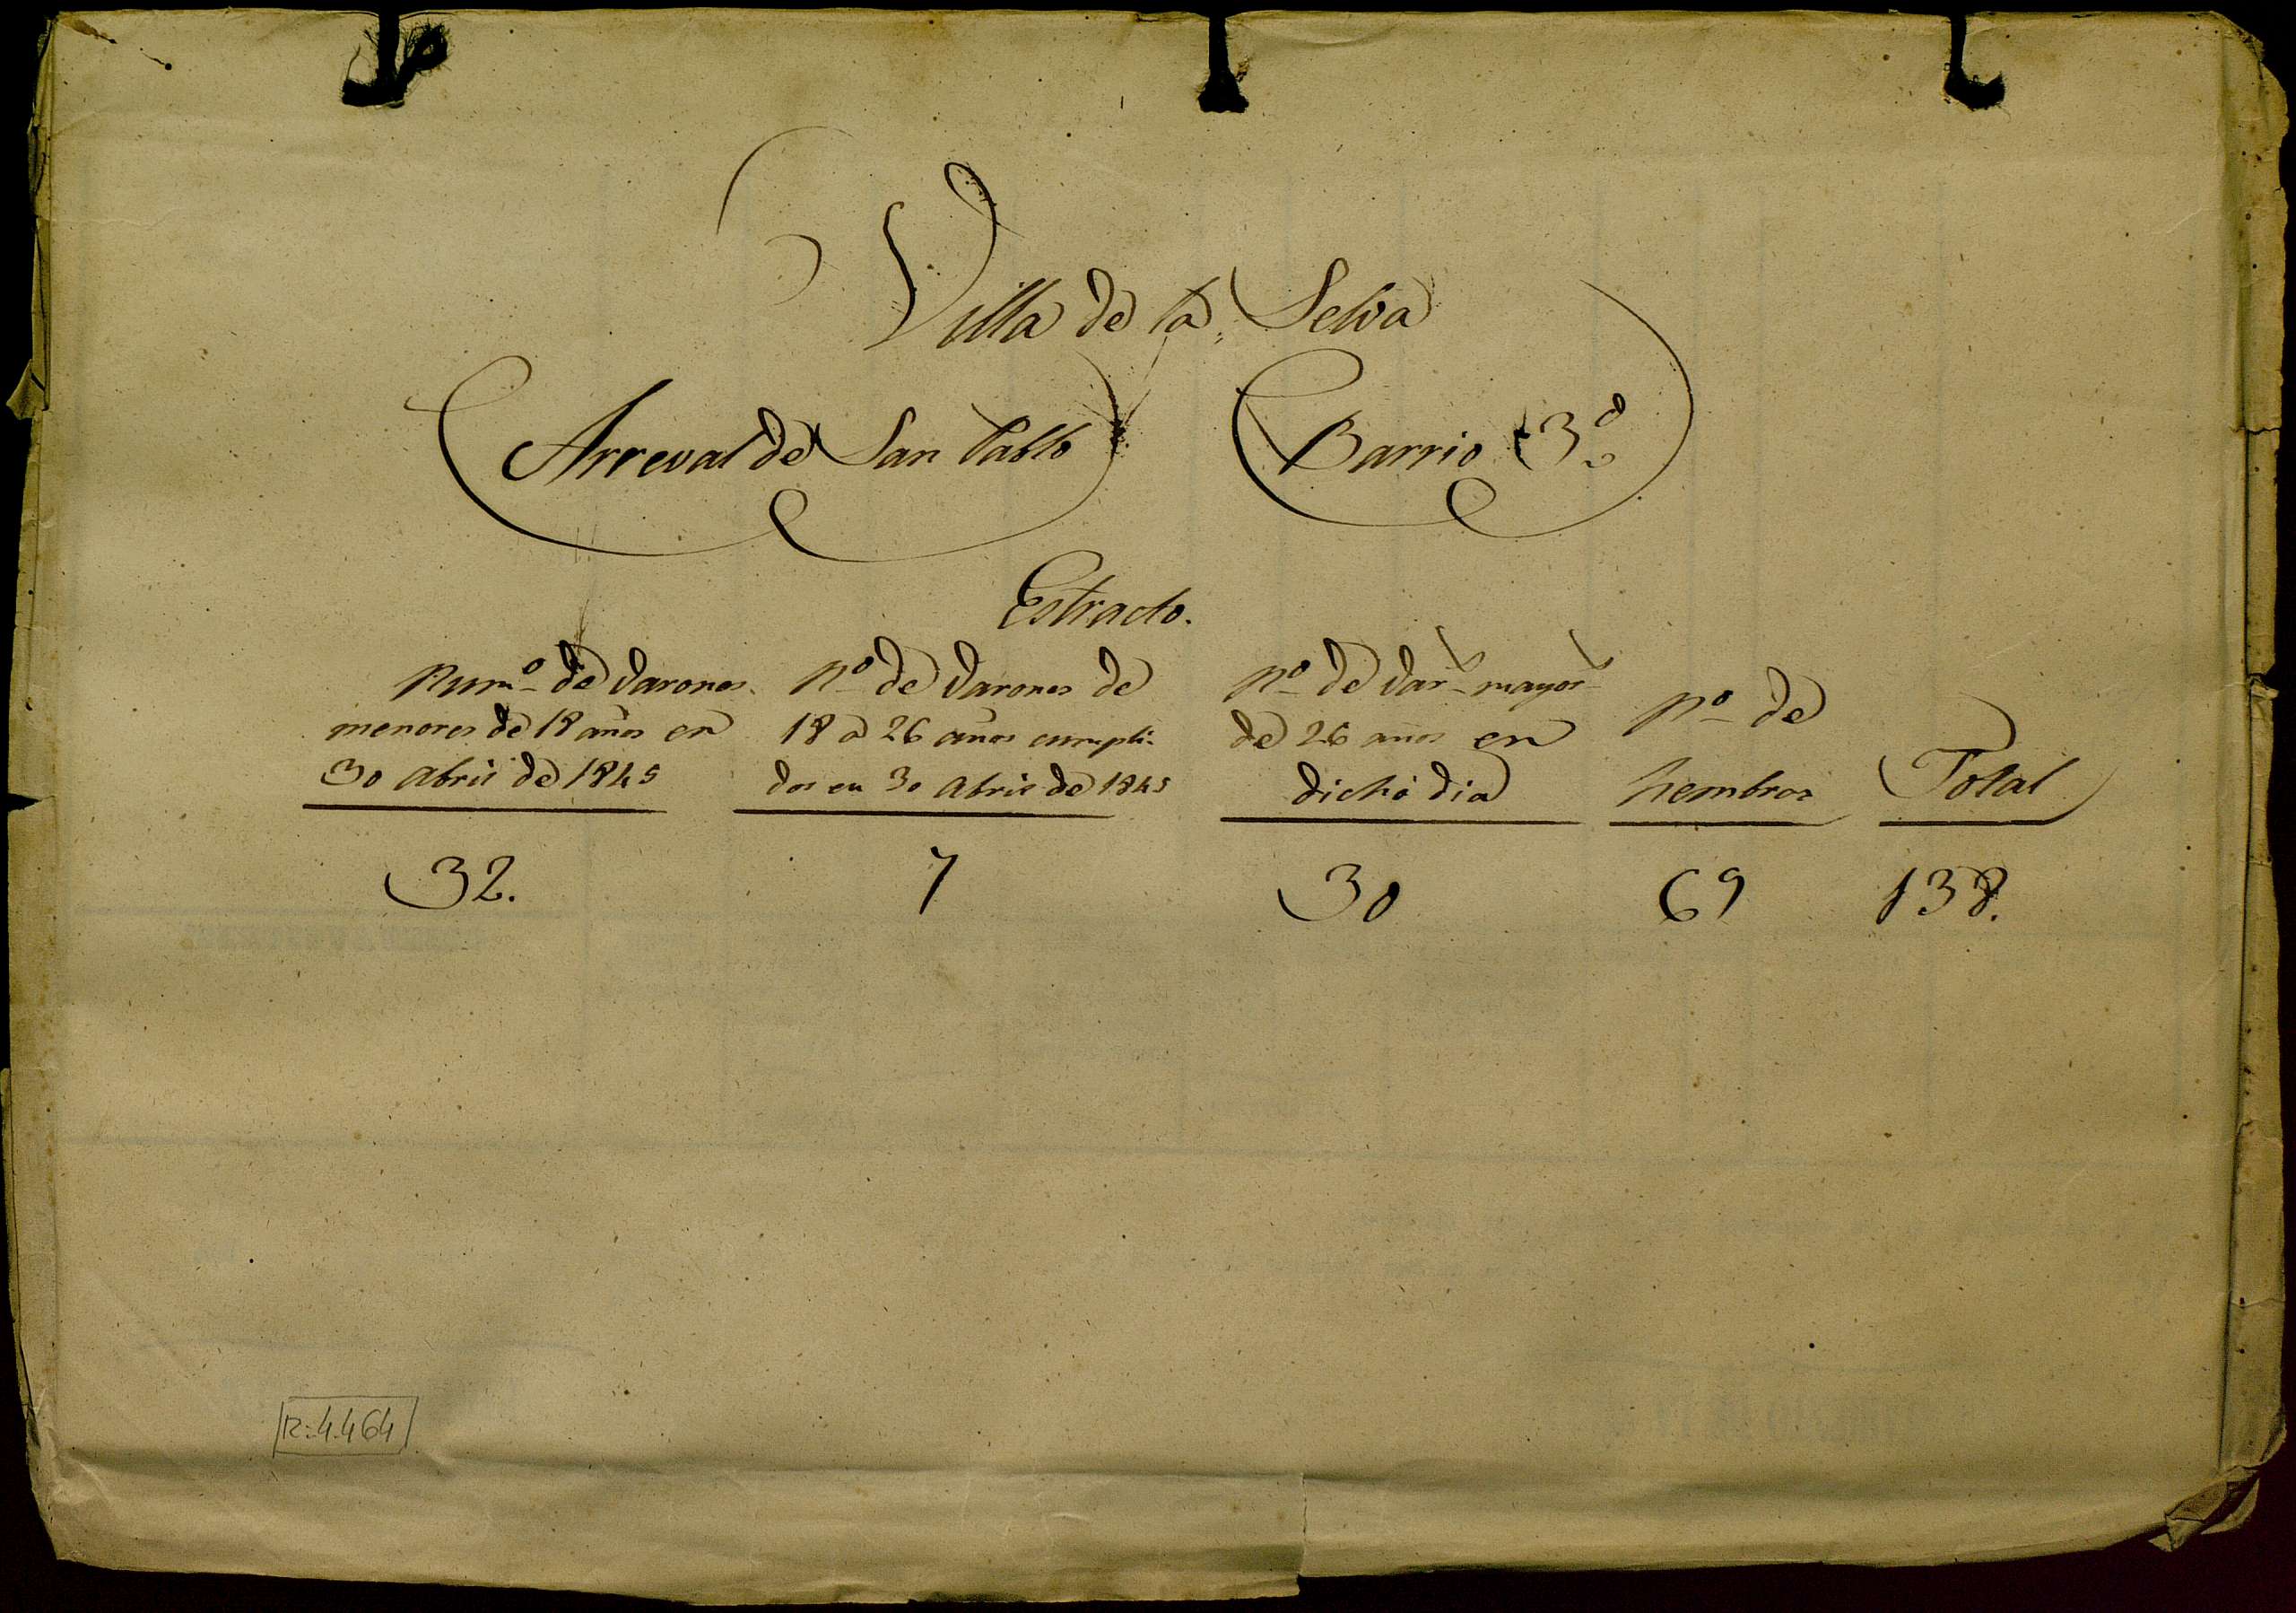 Villa de la Selva
Arreval de San Pablo Barrio 3º
Estracto.
Numº de Varones
menores de 18 años en
30 Abril de 1845
Nº de Varones de
18 a 26 años cumpli-
dos en 30 Abril de 1845
Nº de Vars mayors
de 26 años en
dicho dia
Nº de
hembras
Total
32. 7 30 69 138.
R:4.464